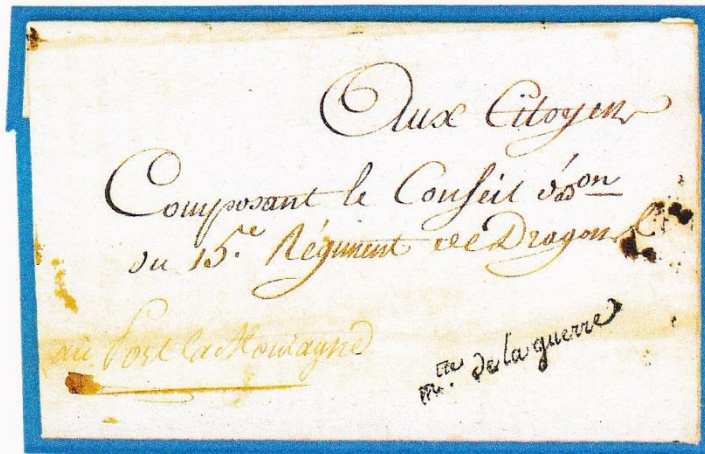 Aux Citoyens
Composant le Conseil d'aon
du 15e. Régiment de Dragons
au Port la Montagne
mtre. de la guerre